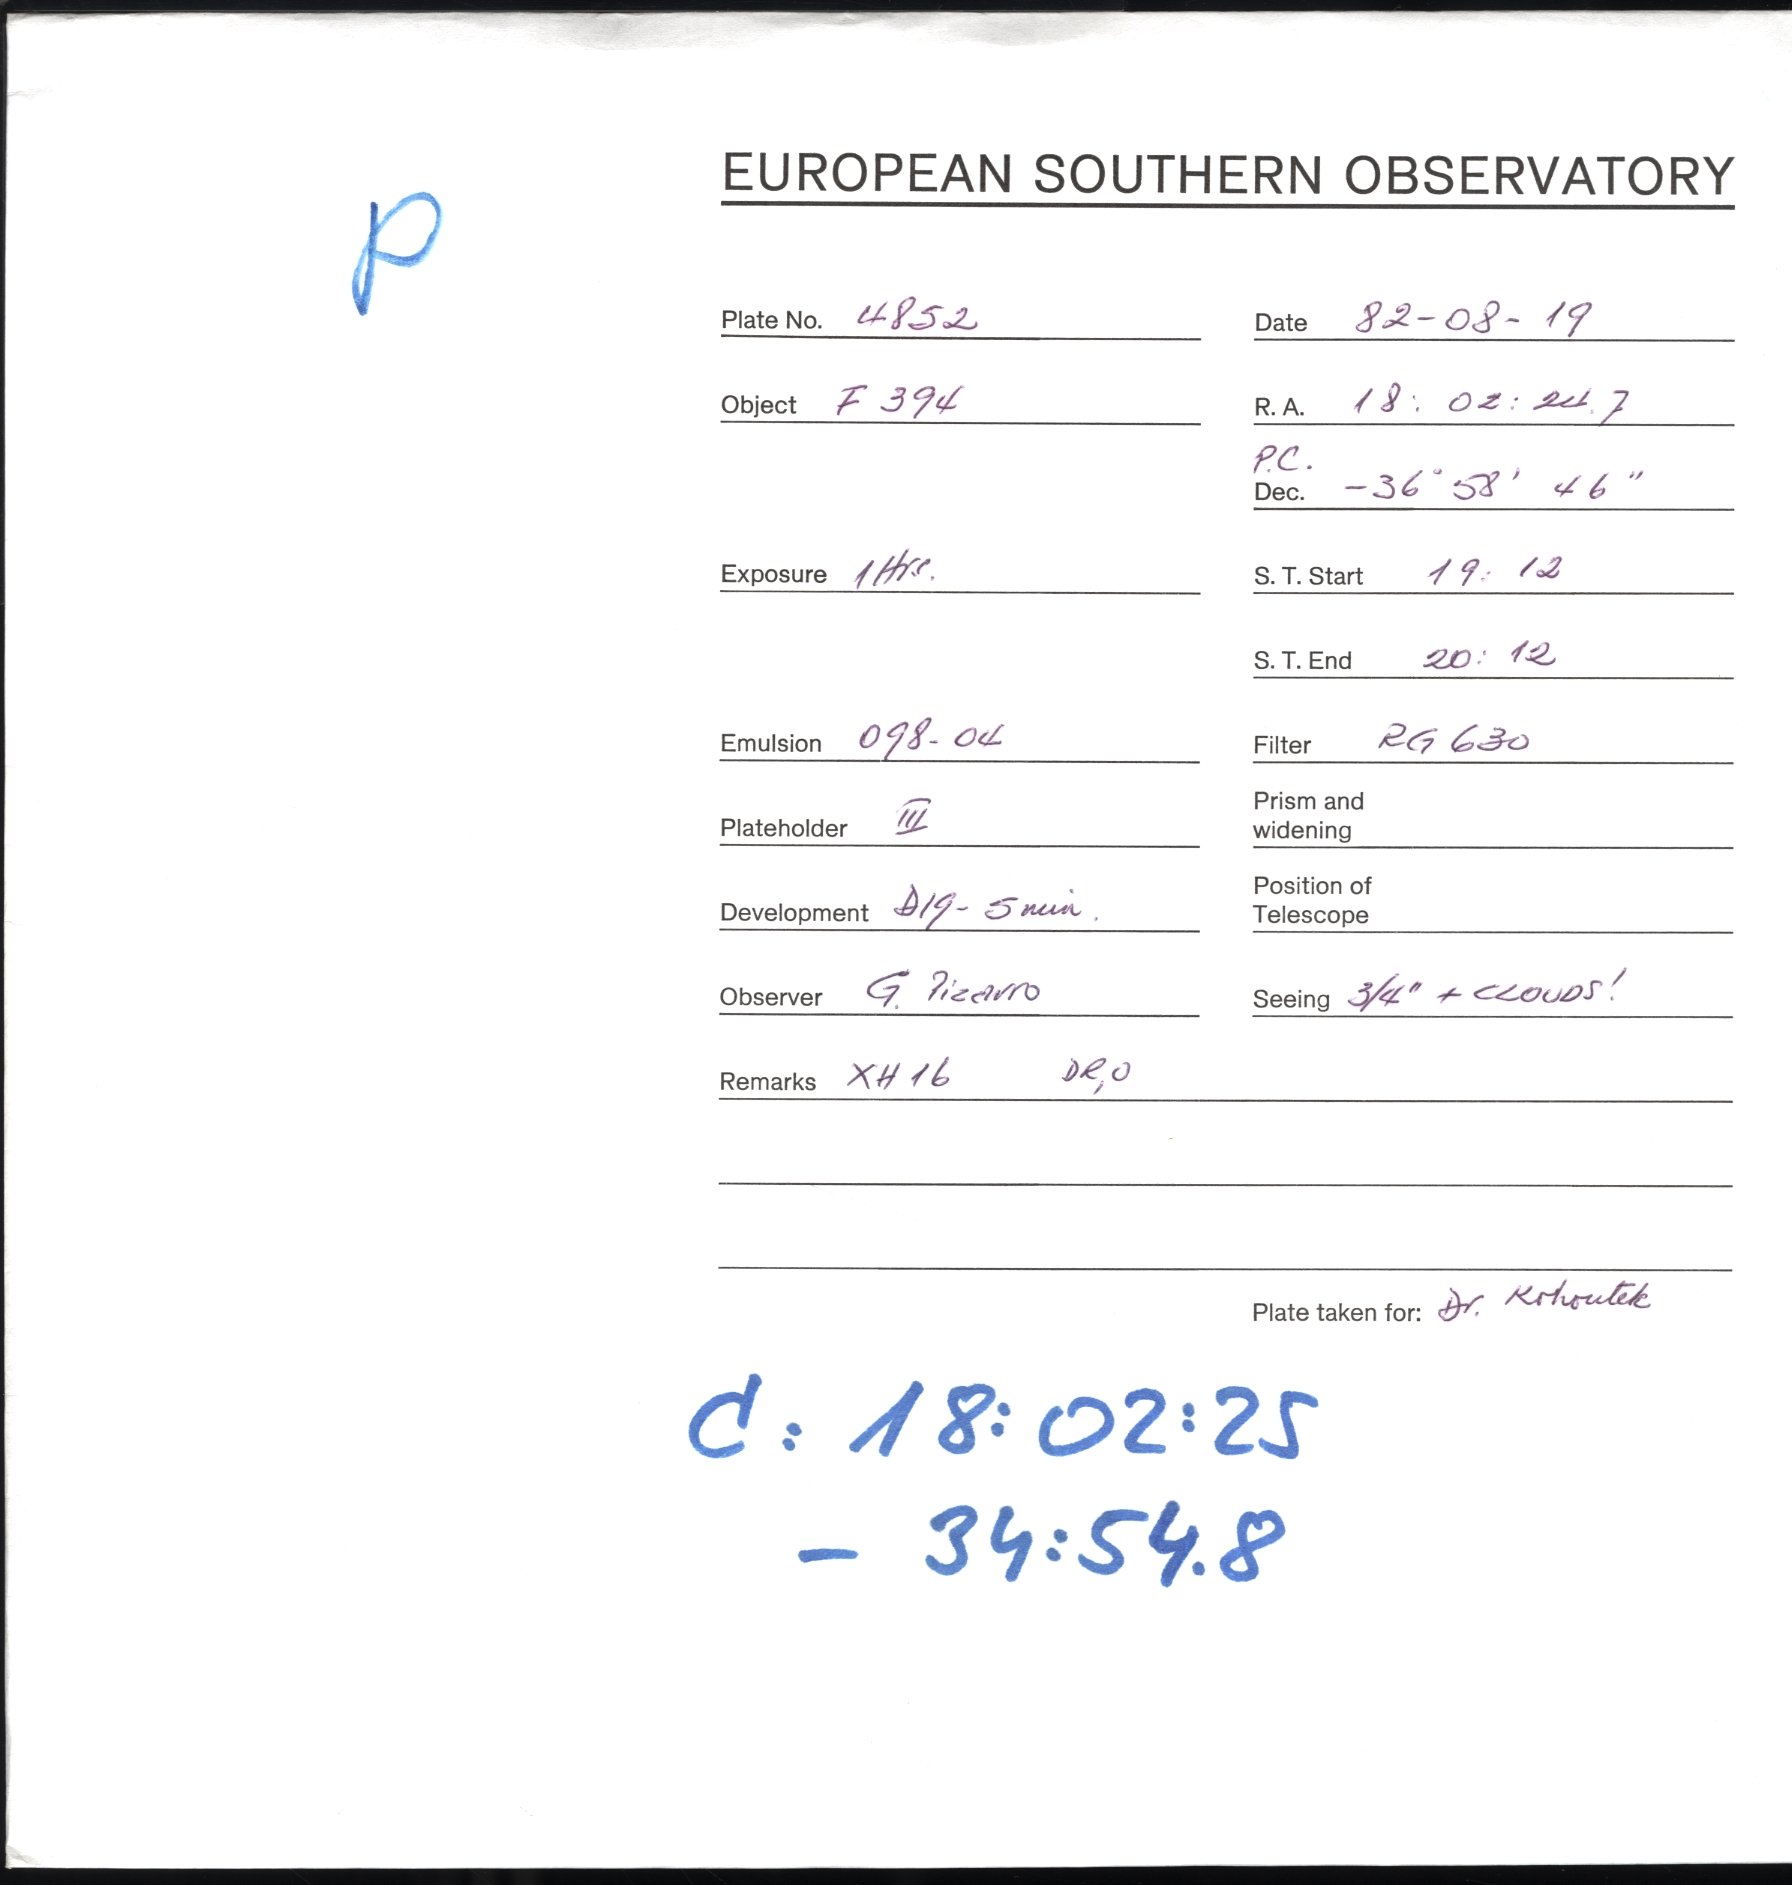 EUROPEAN SOUTHERN OBSERVATORY
P
Plate No. 4852 Date 82-08-19
Object F 394 R. A. 18: 02: 24.7
P.C.
Dec. -36° 58' 46"
Exposure 1 Hrs. S. T. Start 19: 12
S. T. End 20: 12
Emulsion 098-04 Filter RG 630
Plateholder III Prism and
widening
Development D19- 5 min. Position of
Telescope
Observer G. Pizarro Seeing 3/4" + CLOUDS!
Remarks XH16 DR,0
Plate taken for: Dr. Kohoutek
C: 18:02:25
- 34:54.8